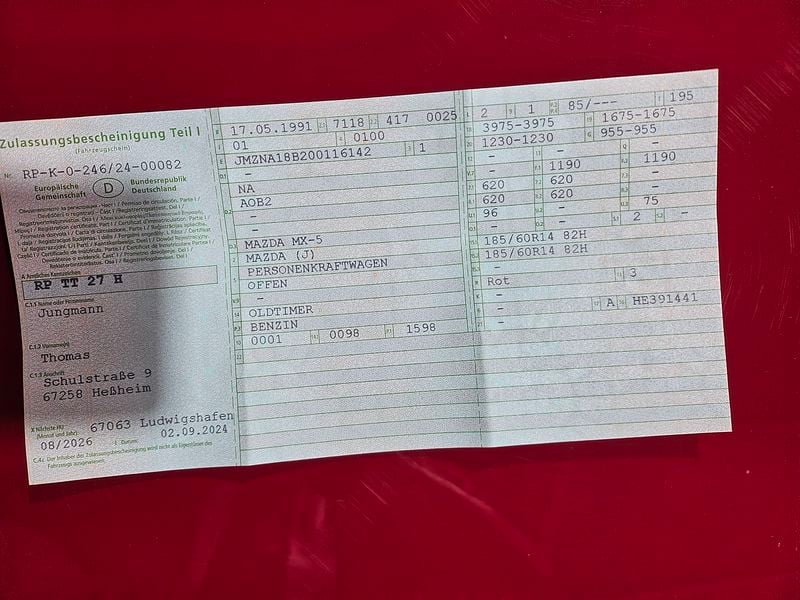 Zulassungsbescheinigung Teil I
(Fahrzeugschein)
Nr. RP-K-0-246/24-00082
Europäische Gemeinschaft
D
Bundesrepublik Deutschland
A Amtliches Kennzeichen
RP TT 27 H
C.1.1 Name oder Firmenname
Jungmann
C.1.2 Vorname(n)
Thomas
C.1.3 Anschrift
Schulstraße 9
67258 Heßheim
X Nächste HU
(Monat und Jahr)
67063 Ludwigshafen
08/2026
Datum:
02.09.2024
C.4c Der Inhaber der Zulassungsbescheinigung wird nicht als Eigentümer des
Fahrzeugs ausgewiesen.
17.05.1991 7118 417 0025
01 0100
JMZNA18B200116142 1
-
NA
AOB2
-
-
MAZDA MX-5
MAZDA (J)
PERSONENKRAFTWAGEN
OFFEN
-
OLDTIMER
BENZIN
0001 0098 1598
2 1 85/--- 195
3975-3975 1675-1675
1230-1230 955-955
- - -
- 1190 1190
620 620 -
620 620 -
96 - 75
- 2 -
185/60R14 82H
185/60R14 82H
-
Rot 3
-
- A HE391441
-